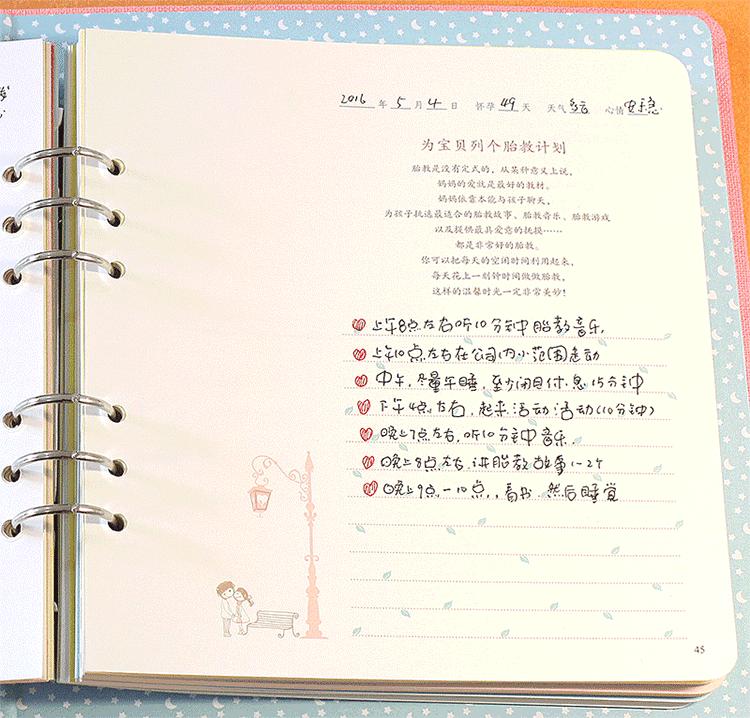 2016年5月4日 怀孕49天 天气多云 心情安稳
为宝贝列个胎教计划
胎教是没有定式的，从某种意义上说，
妈妈的爱就是最好的教材。
妈妈依靠本能与孩子聊天，
为孩子挑选最适合的胎教故事、胎教音乐、胎教游戏
以及提供最具爱意的抚摸……
都是非常好的胎教。
你可以把每天的空闲时间利用起来，
每天花上一刻钟时间做做胎教，
这样的温馨时光一定非常美妙！
上午8点左右听10分钟胎教音乐，
上午10点左右在公司内小范围走动
中午，尽量午睡，至少闭目休息15分钟
下午4点左右，起来活动活动(10分钟)
晚上7点左右，听10分钟音乐
晚上8点左右，讲胎教故事1-2个
晚上9点-10点，看书，然后睡觉
45